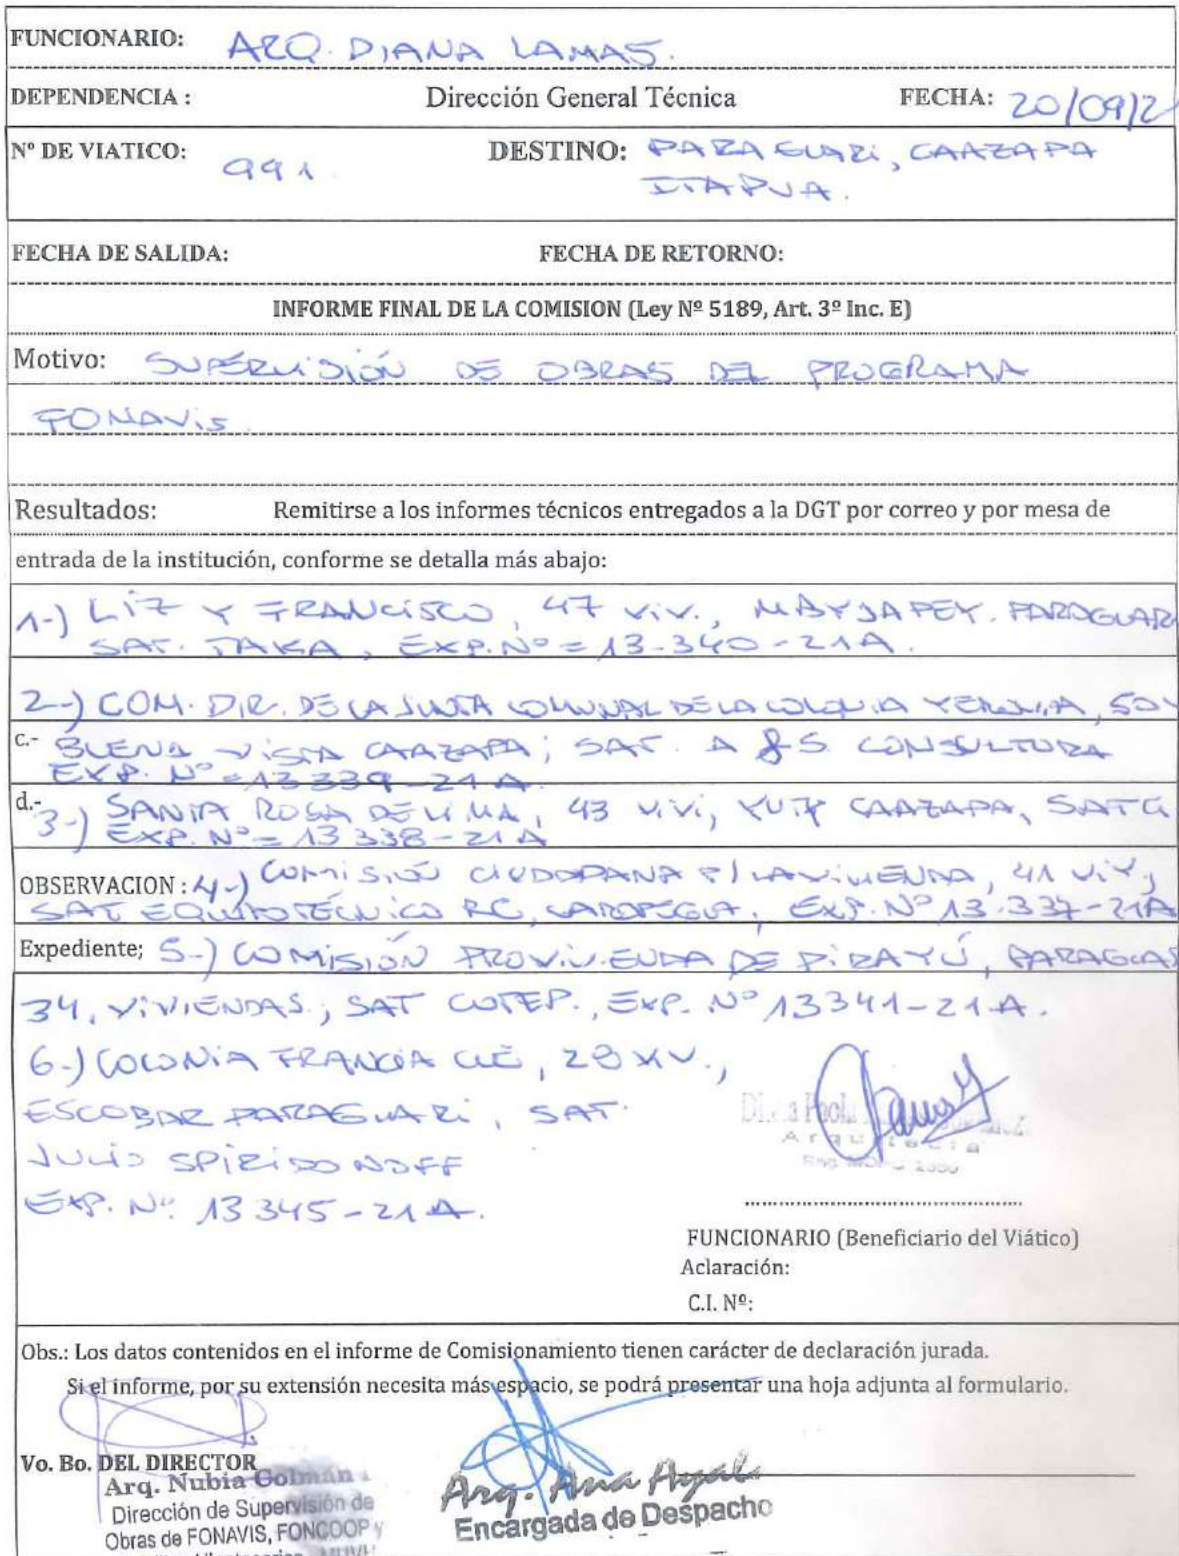 FUNCIONARIO: ARQ. DIANA LAMAS.
DEPENDENCIA : Dirección General Técnica FECHA: 20/09/2
Nº DE VIATICO: 991 DESTINO: PARAGUARI, CAAZAPA
ITAPUA.
FECHA DE SALIDA: FECHA DE RETORNO:
INFORME FINAL DE LA COMISION (Ley Nº 5189, Art. 3º Inc. E)
Motivo: SUPERVISIÓN DE OBRAS DEL PROGRAMA
FONAVIS
Resultados: Remitirse a los informes técnicos entregados a la DGT por correo y por mesa de
entrada de la institución, conforme se detalla más abajo:
1-) LIZ Y FRANCISCO, 47 VIV., MBYJAPEY. PARAGUAR
SAT. TAKA, EXP. Nº = 13-340-21A.
2-) COM. DIR. DE LA JUNTA COMUNAL DE LA COLONIA 50 V
c.- BUENA VISTA CAAZAPA; SAT. A & S CONSULTORA
EXP. Nº = 13339-21A
d.- 3-) SANTA ROSA DE LIMA, 43 VIV, YUTY CAAZAPA, SAT G
EXP. Nº = 13 338-21A
OBSERVACION : 4-) COMISIÓN CIUDADANA P/ LA VIVIENDA, 41 VIV,
SAT EQUIPO TÉCNICO RC, CARAPEGUA, EXP. Nº 13.337-21A
Expediente; 5-) COMISIÓN PROVIVIENDA DE PIRAYÚ, PARAGUAR
34, VIVIENDAS., SAT COTEP., EXP. Nº 13341-21A.
6-) COLONIA FRANCIA CUE, 28 XV.,
ESCOBAR PARAGUARI, SAT.
JULIO SPIRIDONOFF
EXP. Nº 13 345-21A.
Arquitecta
FUNCIONARIO (Beneficiario del Viático)
Aclaración:
C.I. Nº:
Obs.: Los datos contenidos en el informe de Comisionamiento tienen carácter de declaración jurada.
Si el informe, por su extensión necesita más espacio, se podrá presentar una hoja adjunta al formulario.
Vo. Bo. DEL DIRECTOR
Arq. Nubia Golmán
Dirección de Supervisión de
Obras de FONAVIS, FONCOOP y
Arq. Ana Ayala
Encargada de Despacho